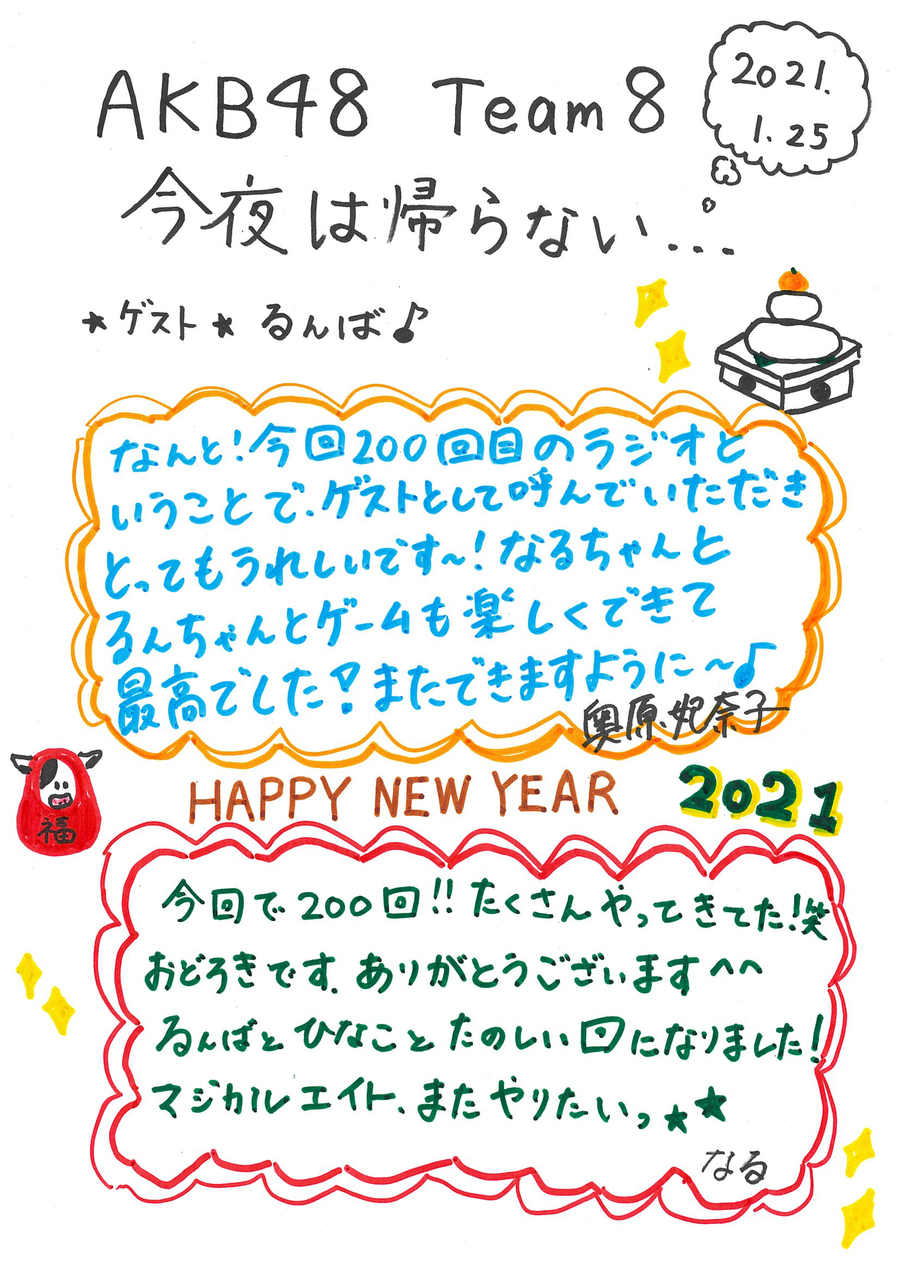 AKB48 Team 8
2021.
1.25
今夜は帰らない...
★ゲスト★ るんば♪
なんと！今回200回目のラジオと
いうことで、ゲストとして呼んでいただき
とってもうれしいです〜！なるちゃんと
るんちゃんとゲームも楽しくできて
最高でした！またできますように〜♪
奥原妃奈子
福
HAPPY NEW YEAR 2021
今回で200回!!たくさんやってきてた！笑
おどろきです。ありがとうございます^^
るんばとひなことたのしい回になりました！
マジカルエイト、またやりたいっ★★
なる